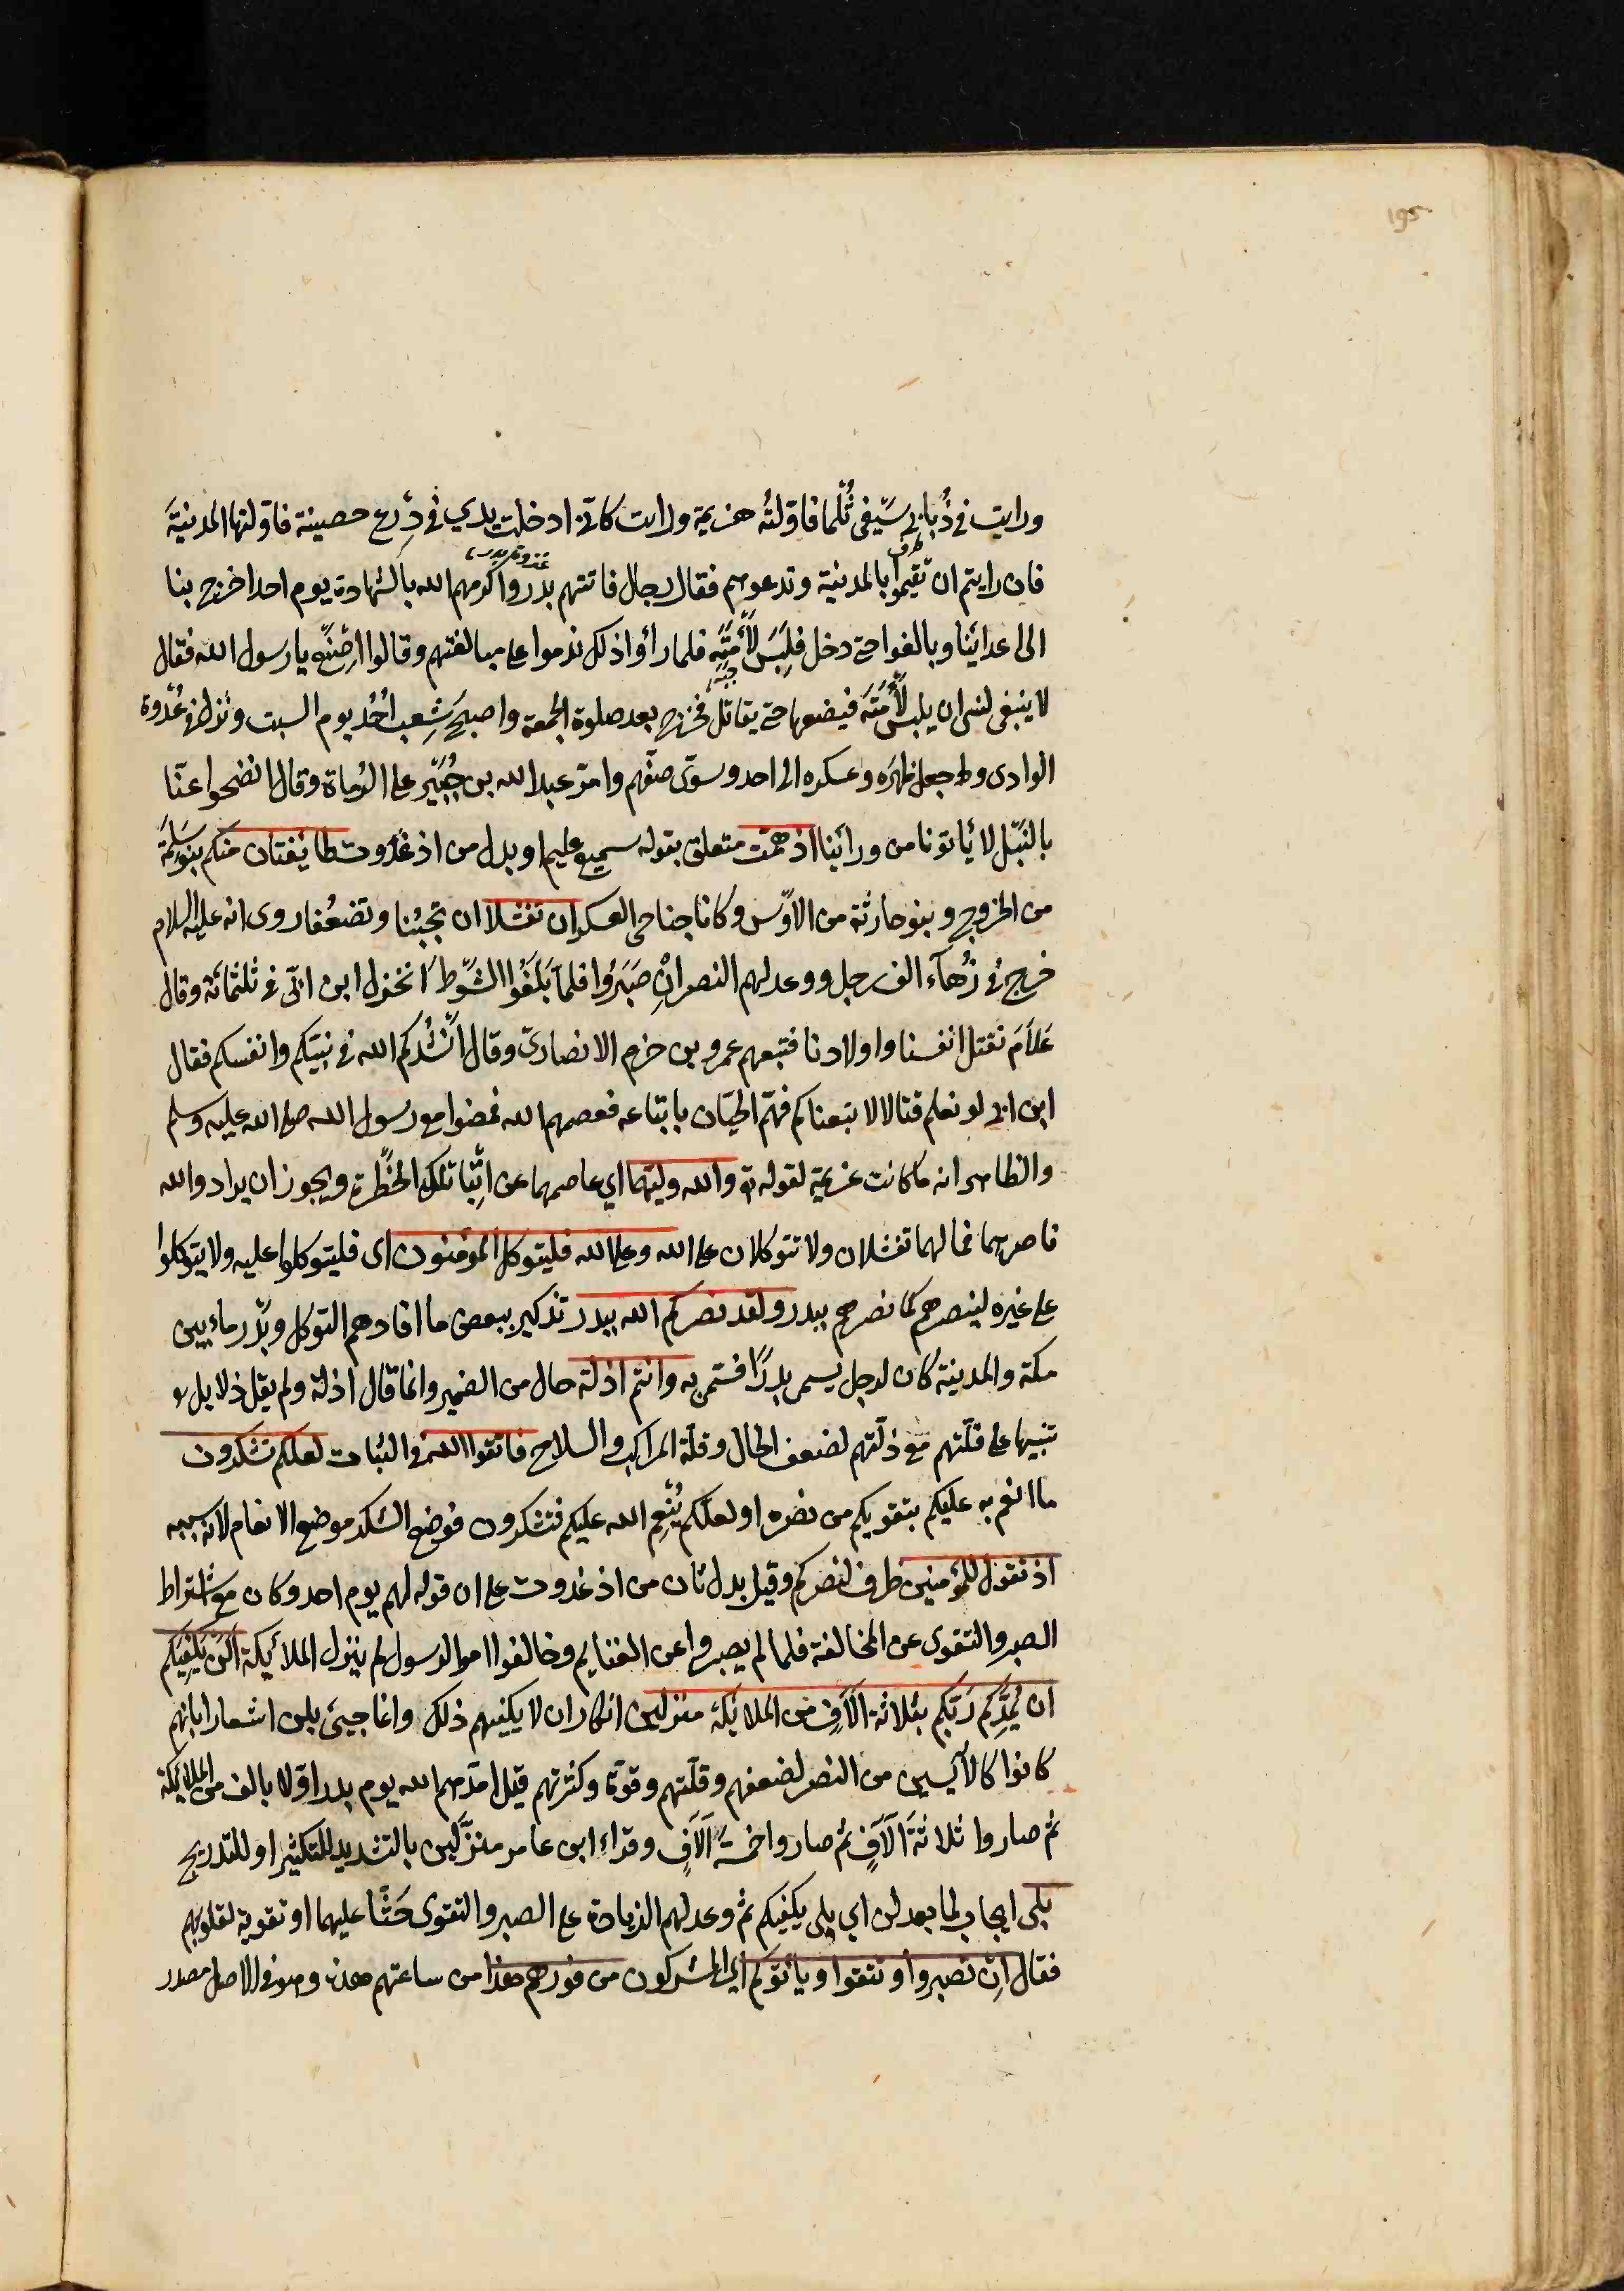 195
ورايت في ذُباب سَيفي ثُلما فاوّلتُه هزيمة ورايت كاني ادخلت يدي في دِرع حصينة فاوّلتها المدينةَ
فان رايتم ان تقيموا بالمدينة وتدعوهم فقال رجال فاتتهم بدر واكرمهم الله بالشهادة يوم احد اخرج بنا
الى اعدائنا وبالغوا حتى دخل فلَبِسَ لأْمَتَه فلما رأوا ذلك ندموا على مبالغتهم وقالوا اصنع يا رسول الله فقال
لا ينبغي لنبي ان يلبس لأْمَتَه فيضعها حتى يقاتل فخرج بعد صلوة الجمعة واصبح شِعب اُحُد يوم السبت ونزل في عُدوة
الوادى و جعل ظهره وعسكره الى احد وسوّى صفّهم وامّر عبد الله بن جُبَير على الرُماة وقال انضحوا عنّا
بالنَبل لا يأتونا من ورائنا اذ همّت متعلق بقوله سميع عليم او بدل من اذ غدوت طائفتان منكم بنو سَلِمَة
من الخزرج وبنو حارثة من الاوس وكانا جناحى العسكر ان تفشلا ان تجبُنا وتضعُفا روى انه عليه السلام
خرج في زُهآء الف رجل ووعد لهم النصر اِن صَبَرُوا فلما بَلَغُوا الشَوطَ انخزل ابن ابيّ في ثلثمائة وقال
عَلامَ نقتل انفسنا واولادنا فتبعهم عمرو بن حزم الانصاريّ وقال اَنشُدُكم الله في نبيّكم وانفسكم فقال
ابن ابي لو نعلم قتالا لاتبعناكم فهمّ الحيّان باتباعه فعصمهم الله فمضوا مع رسول الله صلى الله عليه وسلم
والظاهر انه ما كانت عزيمة لقوله تع والله وليّهما اي عاصمهما عن اتّباع تلك الخَطْرة ويجوز ان يراد والله
ناصرهما فما لهما تفشلان ولا تتوكلان على الله وعلى الله فليتوكل المؤمنون اى فليتوكلوا عليه ولا يتوكلوا
على غيره لينصرهم كما نصرهم ببدر ولقد نصركم الله ببدر تذكير ببعض ما افادهم التوكل وبدر ماء بين
مكة والمدينة كان لرجل يسمى بدرًا فسُمّى به وانتم اذلة حال من الضمير وانما قال اذلة ولم يقل ذلايل
تنبيها على قلّتهم مع ذلّتهم لضعف الحال وقلّة المراكب والسلاح فاتقوا الله في الثبات لعلكم تشكرون
ما انعم به عليكم بتقويكم من نصره او لعلّكم يُنعِم الله عليكم فتشكرون فوضع الشكر موضع الانعام لانه سببه
اذ تقول للمؤمنين ظرف لنصركم وقيل بدل ثان من اذ غدوت على ان قوله لهم يوم احد وكان مع اشتراط
الصبر والتقوى عن المخالفة فلما لم يصبروا عن الغنايم وخالفوا امر الرسول لم ينزل الملائكة اَلَن يَكفِيَكم
ان يُمِدَّكم رَبّكم بثلاثة اَلَافٍ من الملائكة منزلين انكار ان لا يكفيهم ذلك وانما جيئ بلن اشعارا بانهم
كانوا كالآيسين من النصر لضعفهم وقلّتهم وقوّة وكثرتهم قيل امدّهم الله يوم بدر اوّلا بالف من الملائكة
ثم صاروا ثلاثةَ آلَافٍ ثم صاروا خمسةَ آلَافٍ وقراء ابن عامر منزَّلين بالتشديد للتكثير او للتدريج
بلى ايجاب لما بعد لن اي بلى يكفيكم ثم وعد لهم الزيادة على الصبر والتقوى حَثًّا عليهما او تقوية لقلوبهم
فقال اِن تصبروا وتتقوا ويأتوكم اي المشركون من فورهم هذا من ساعتهم هذه وهو في الاصل مصدر